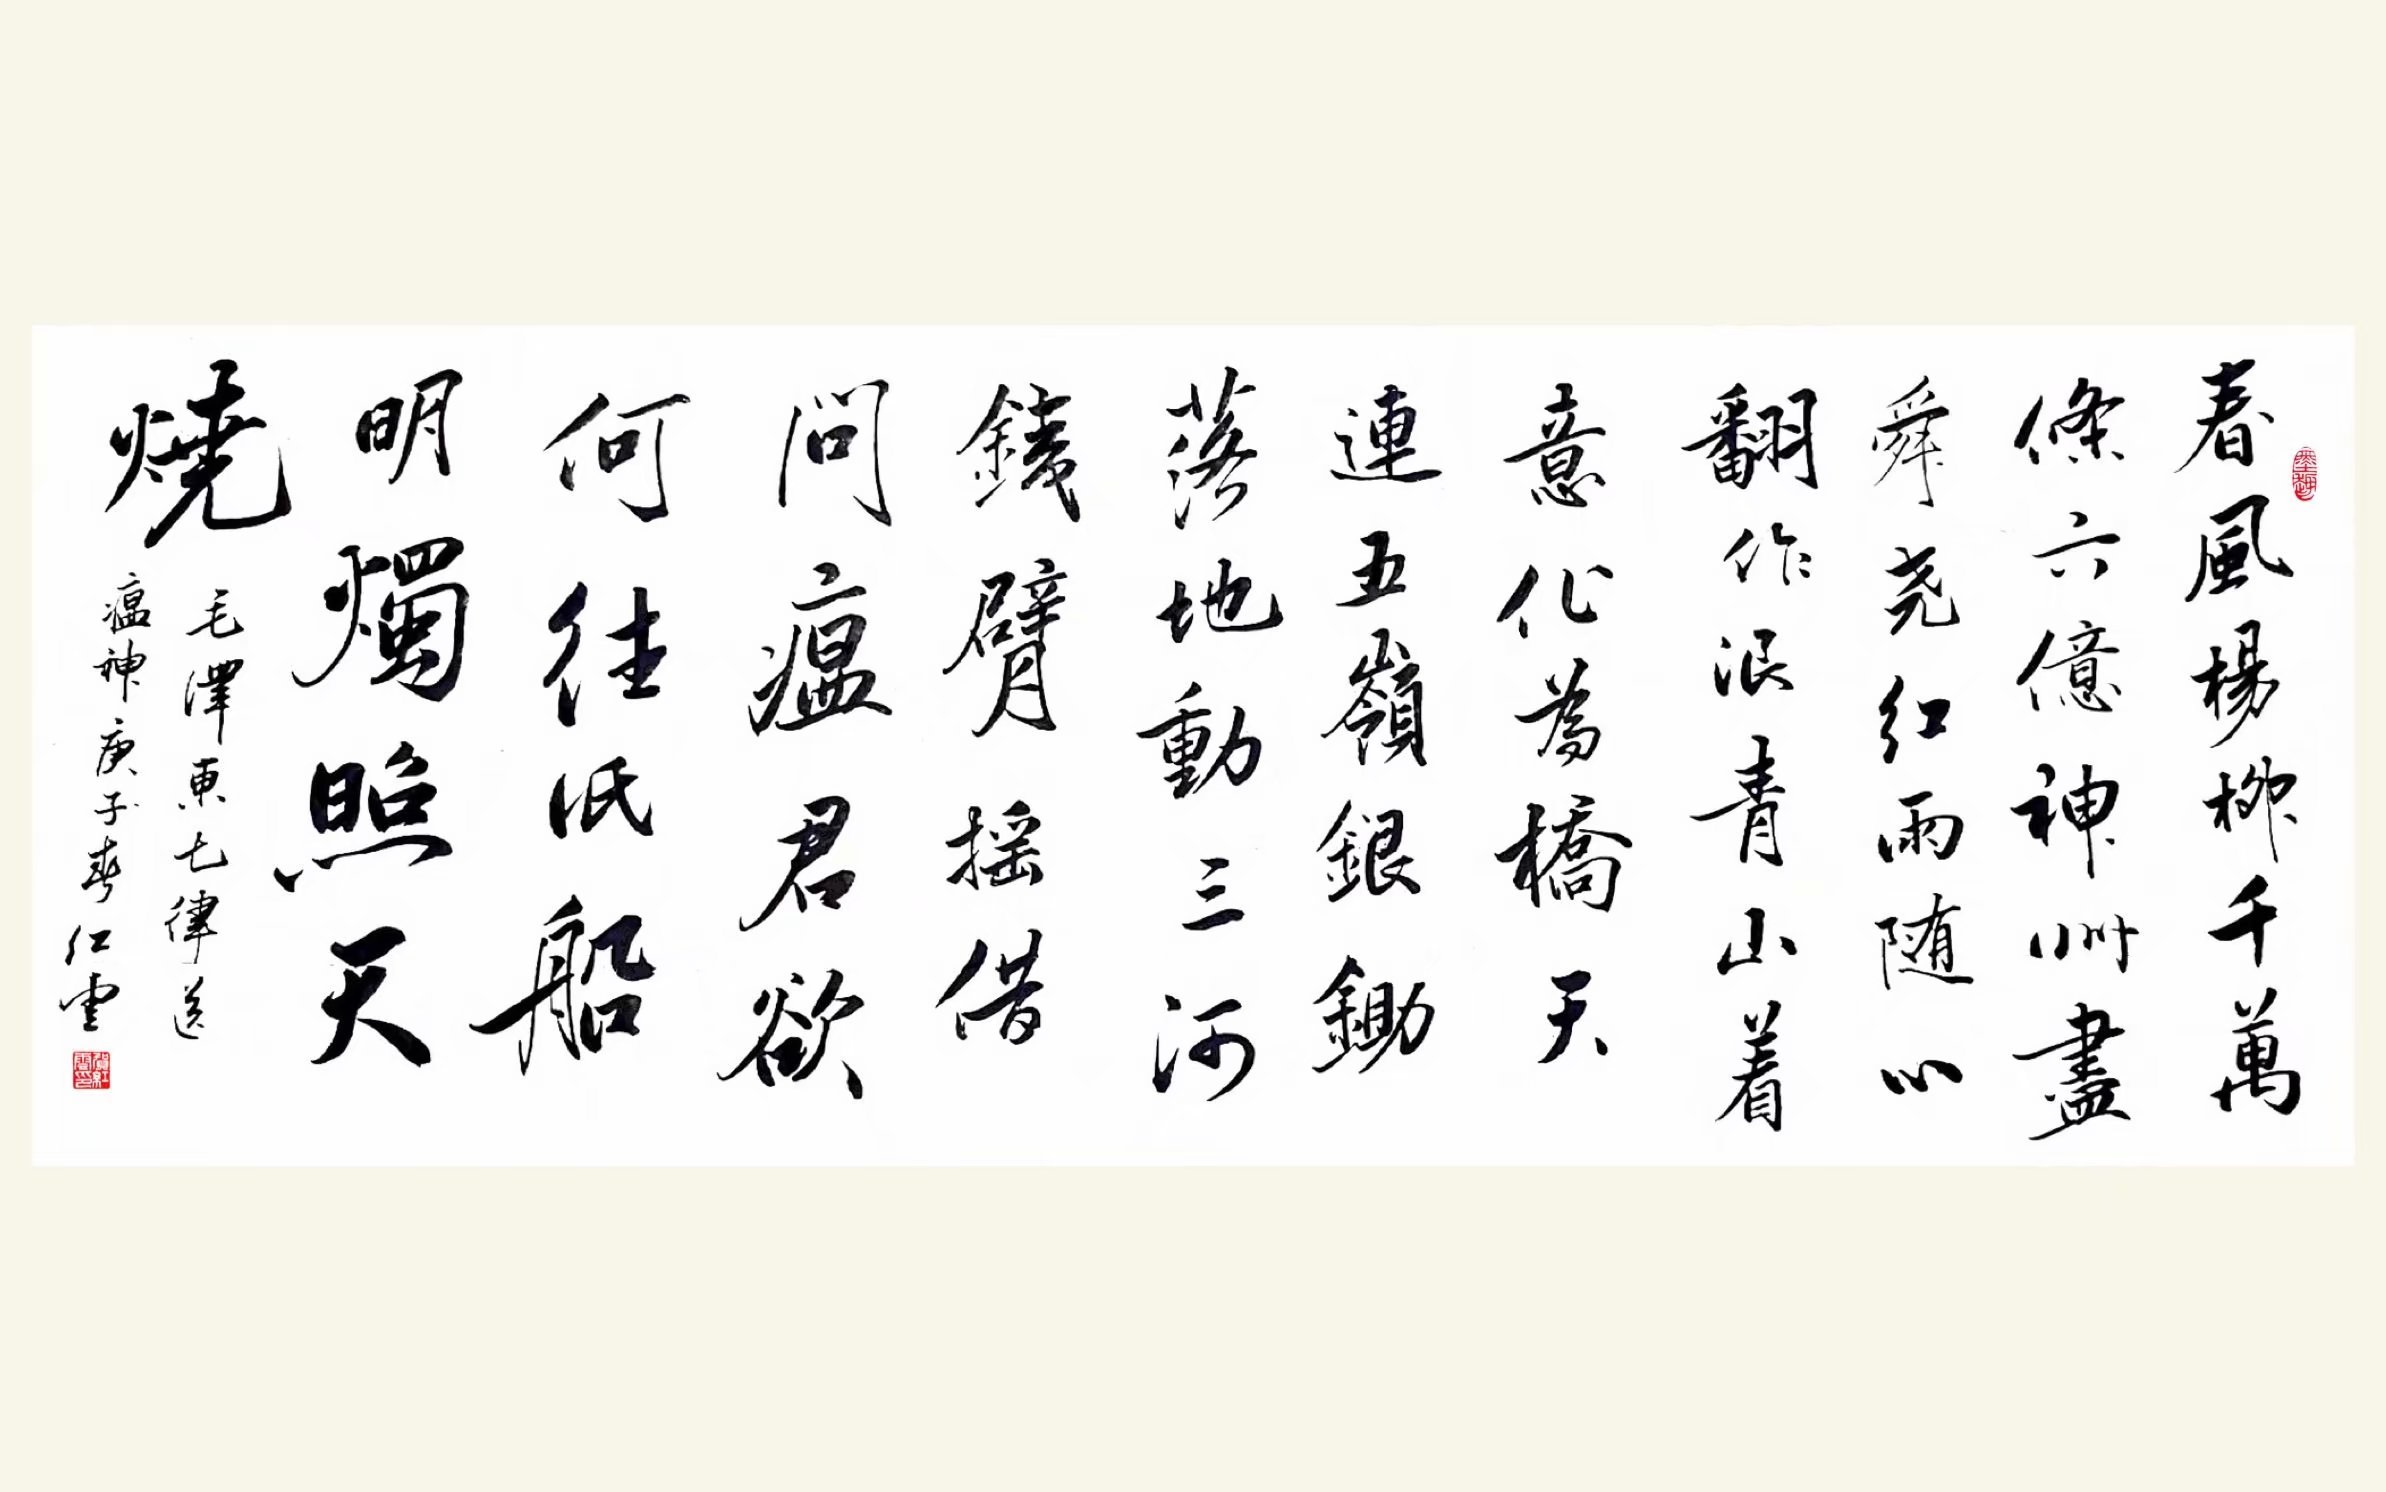 春風楊柳千萬
條六億神州盡
舜尧红雨随心
翻作浪青山着
意化為橋天
連五嶺銀鋤
落地動三河
鐵臂摇借
問瘟君欲
何往泜船
明燭照天
燒
毛澤東七律送
瘟神庚子春红雲